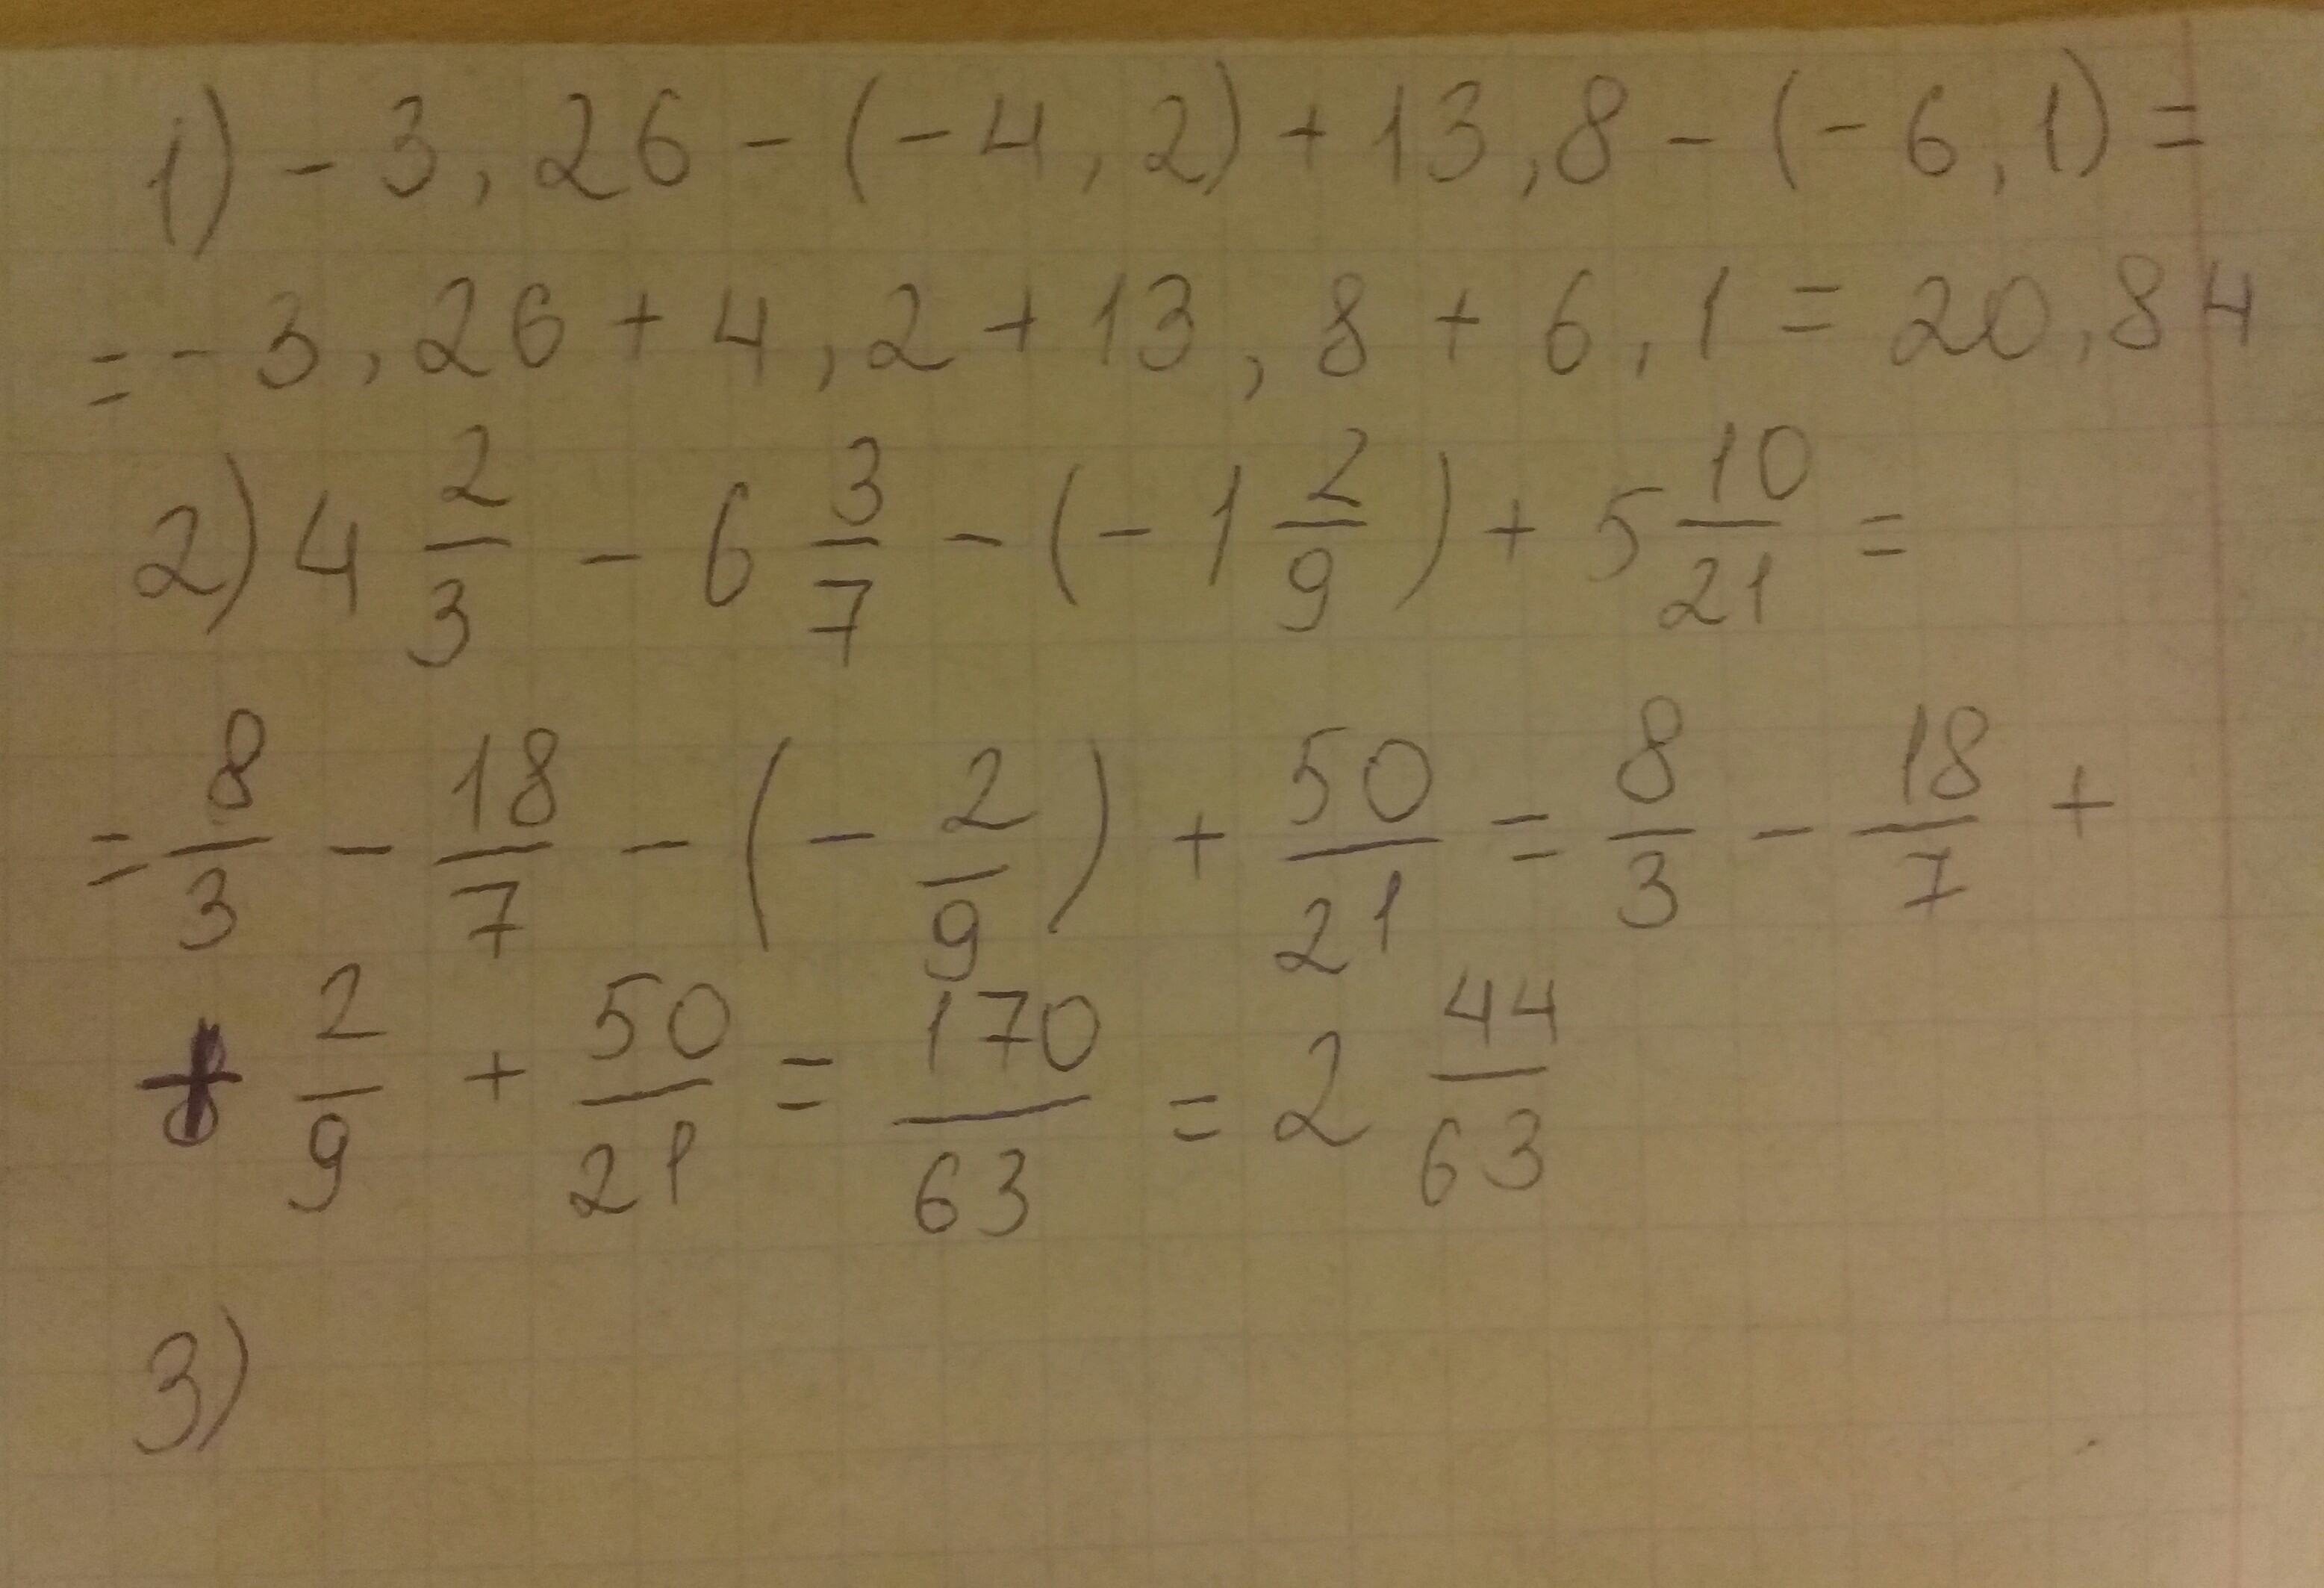 1) - 3,26 - (-4,2) + 13,8 - (-6,1) =
= - 3,26 + 4,2 + 13,8 + 6,1 = 20,84
2) 4 2/3 - 6 3/7 - (-1 2/9) + 5 10/21 =
= 8/3 - 18/7 - (- 2/9) + 50/21 = 8/3 - 18/7 +
+ 2/9 + 50/21 = 170/63 = 2 44/63
3)